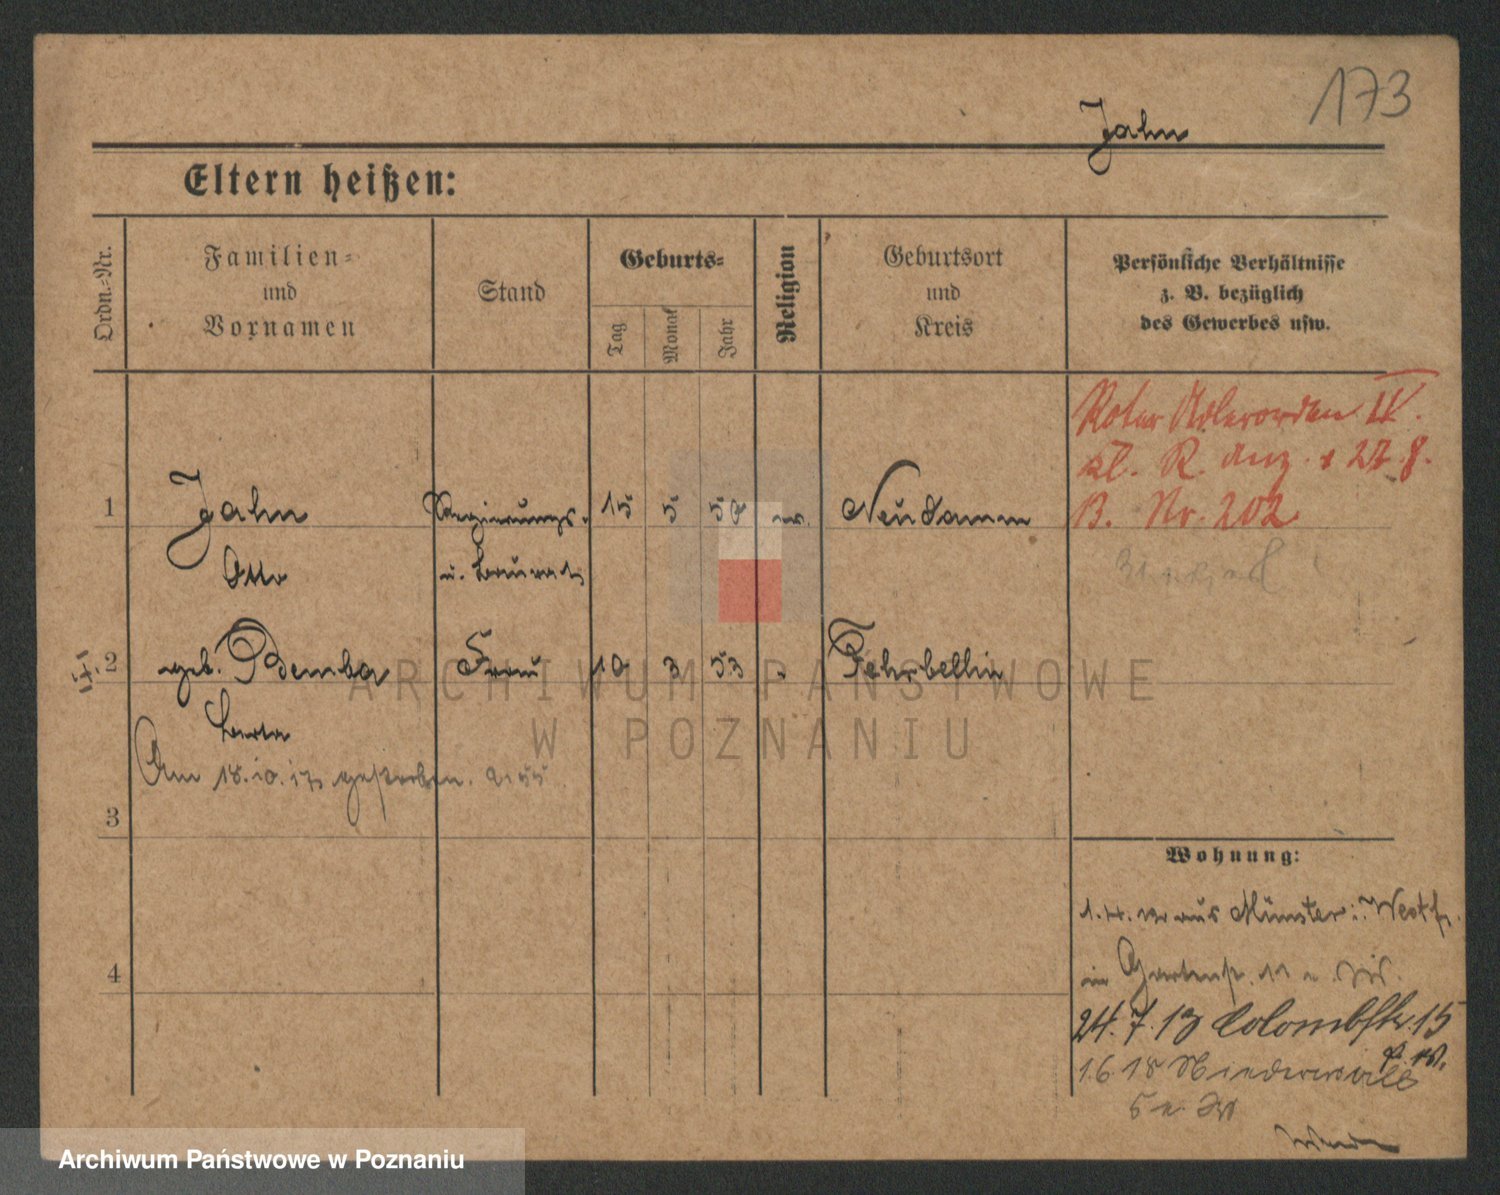 173
Jahn
Eltern heißen:
Ordn.-Nr.
Familien-
und
Vornamen
Stand
Geburts-
Tag
Monat
Jahr
Religion
Geburtsort
und
Kreis
Persönliche Verhältnisse
z. B. bezüglich
des Gewerbes usw.
Roter Adlerorden IV.
kl. R. Anz. v 27.8.
B. Nr. 202
1 Jahn Regierungs- 15 5 ev. Neudamm
Otto u. Baurat
2 geb. Bemba Frau 10 3 53 " Fehrbellin
Berta
Am 18.10.17 gestorben.
3
4
Wohnung:
aus Münster i. Westf.
in Gartenstr. 11
24.7.13 Colombstr. 15
1.6.18 Niederwall
5
ARCHIWUM PAŃSTWOWE
W POZNANIU
Archiwum Państwowe w Poznaniu